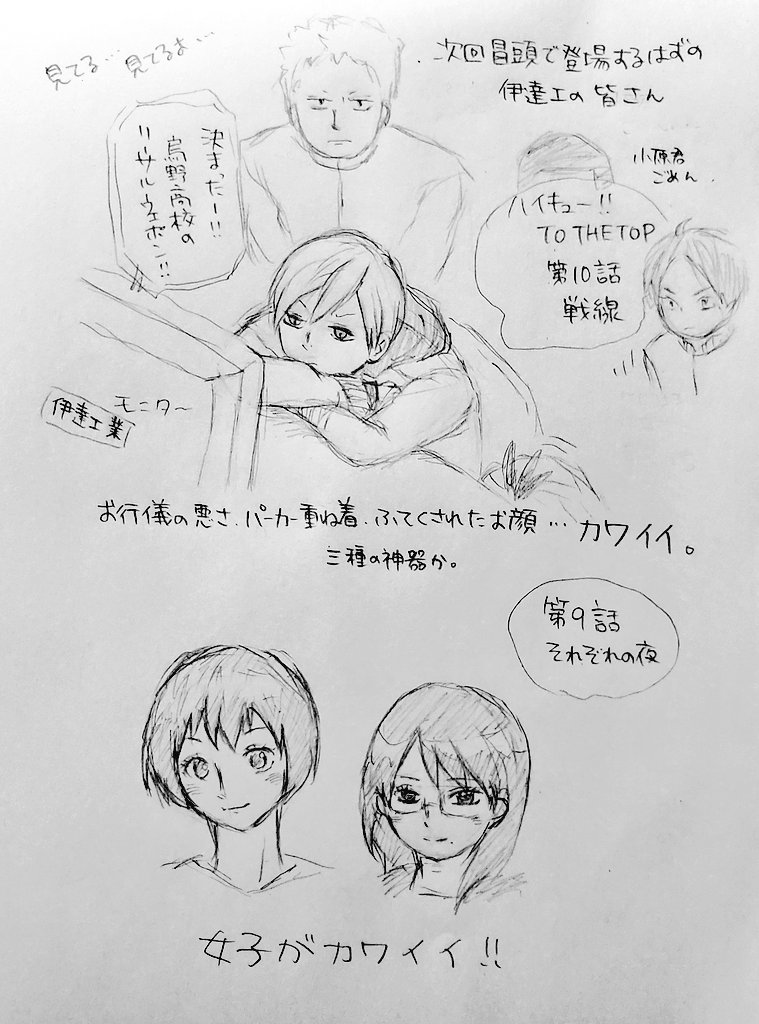 見てる… 見てるよ…
次回冒頭で登場するはずの
伊達工の皆さん
決まったー!!
烏野高校の
リーサルウェポン!!
小原君
ごめん
ハイキュー!!
TO THE TOP
第10話
戦線
伊達工業
モニター
お行儀の悪さ、パーカー重ね着、ふてくされたお顔…カワイイ。
三種の神器か。
第9話
それぞれの夜
女子がカワイイ!!